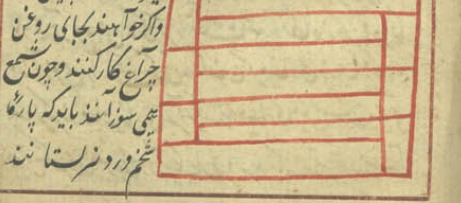 واکر خواهند بجای روغن
چراغ کار کنند و چون شمع
می سوزانند باید که پارۀ
شخم درد نرلستا نند